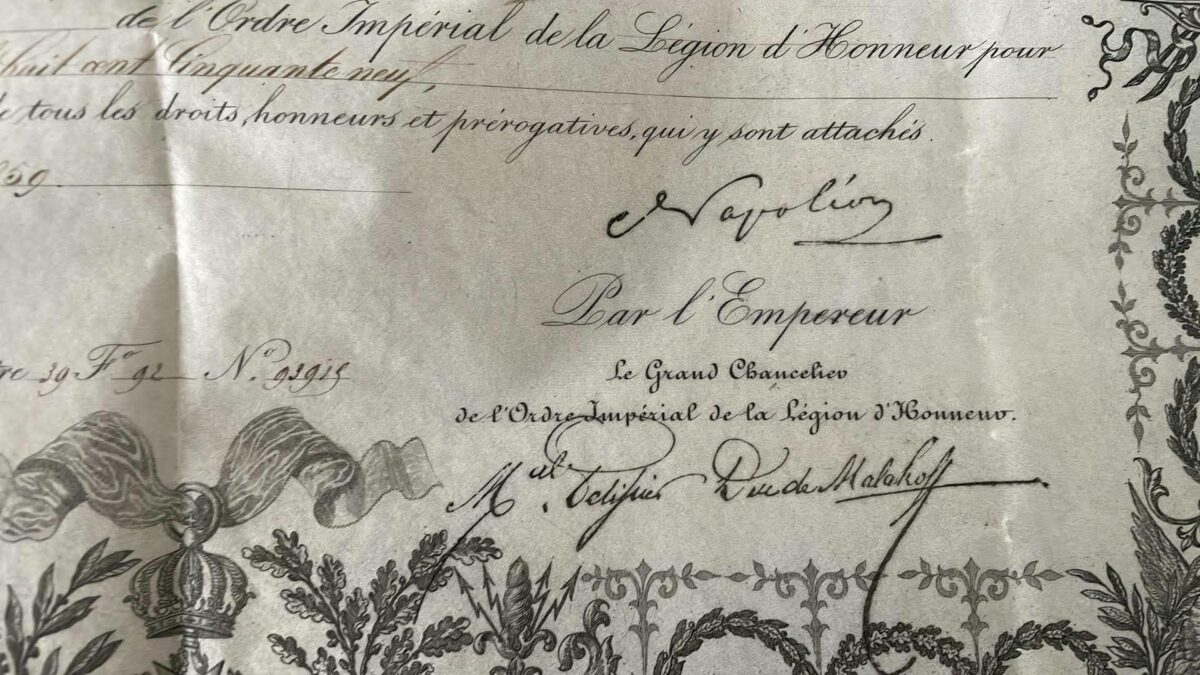 de l'Ordre Impérial de la Légion d'Honneur pour
huit cent Cinquante neuf,
tous les droits, honneurs et prérogatives, qui y sont attachés.
59
Napoléon
Par l'Empereur
39 Fo 92 No 93915
Le Grand Chancelier
de l'Ordre Impérial de la Légion d'Honneur.
Mal. Pelissier Duc de Malakoff